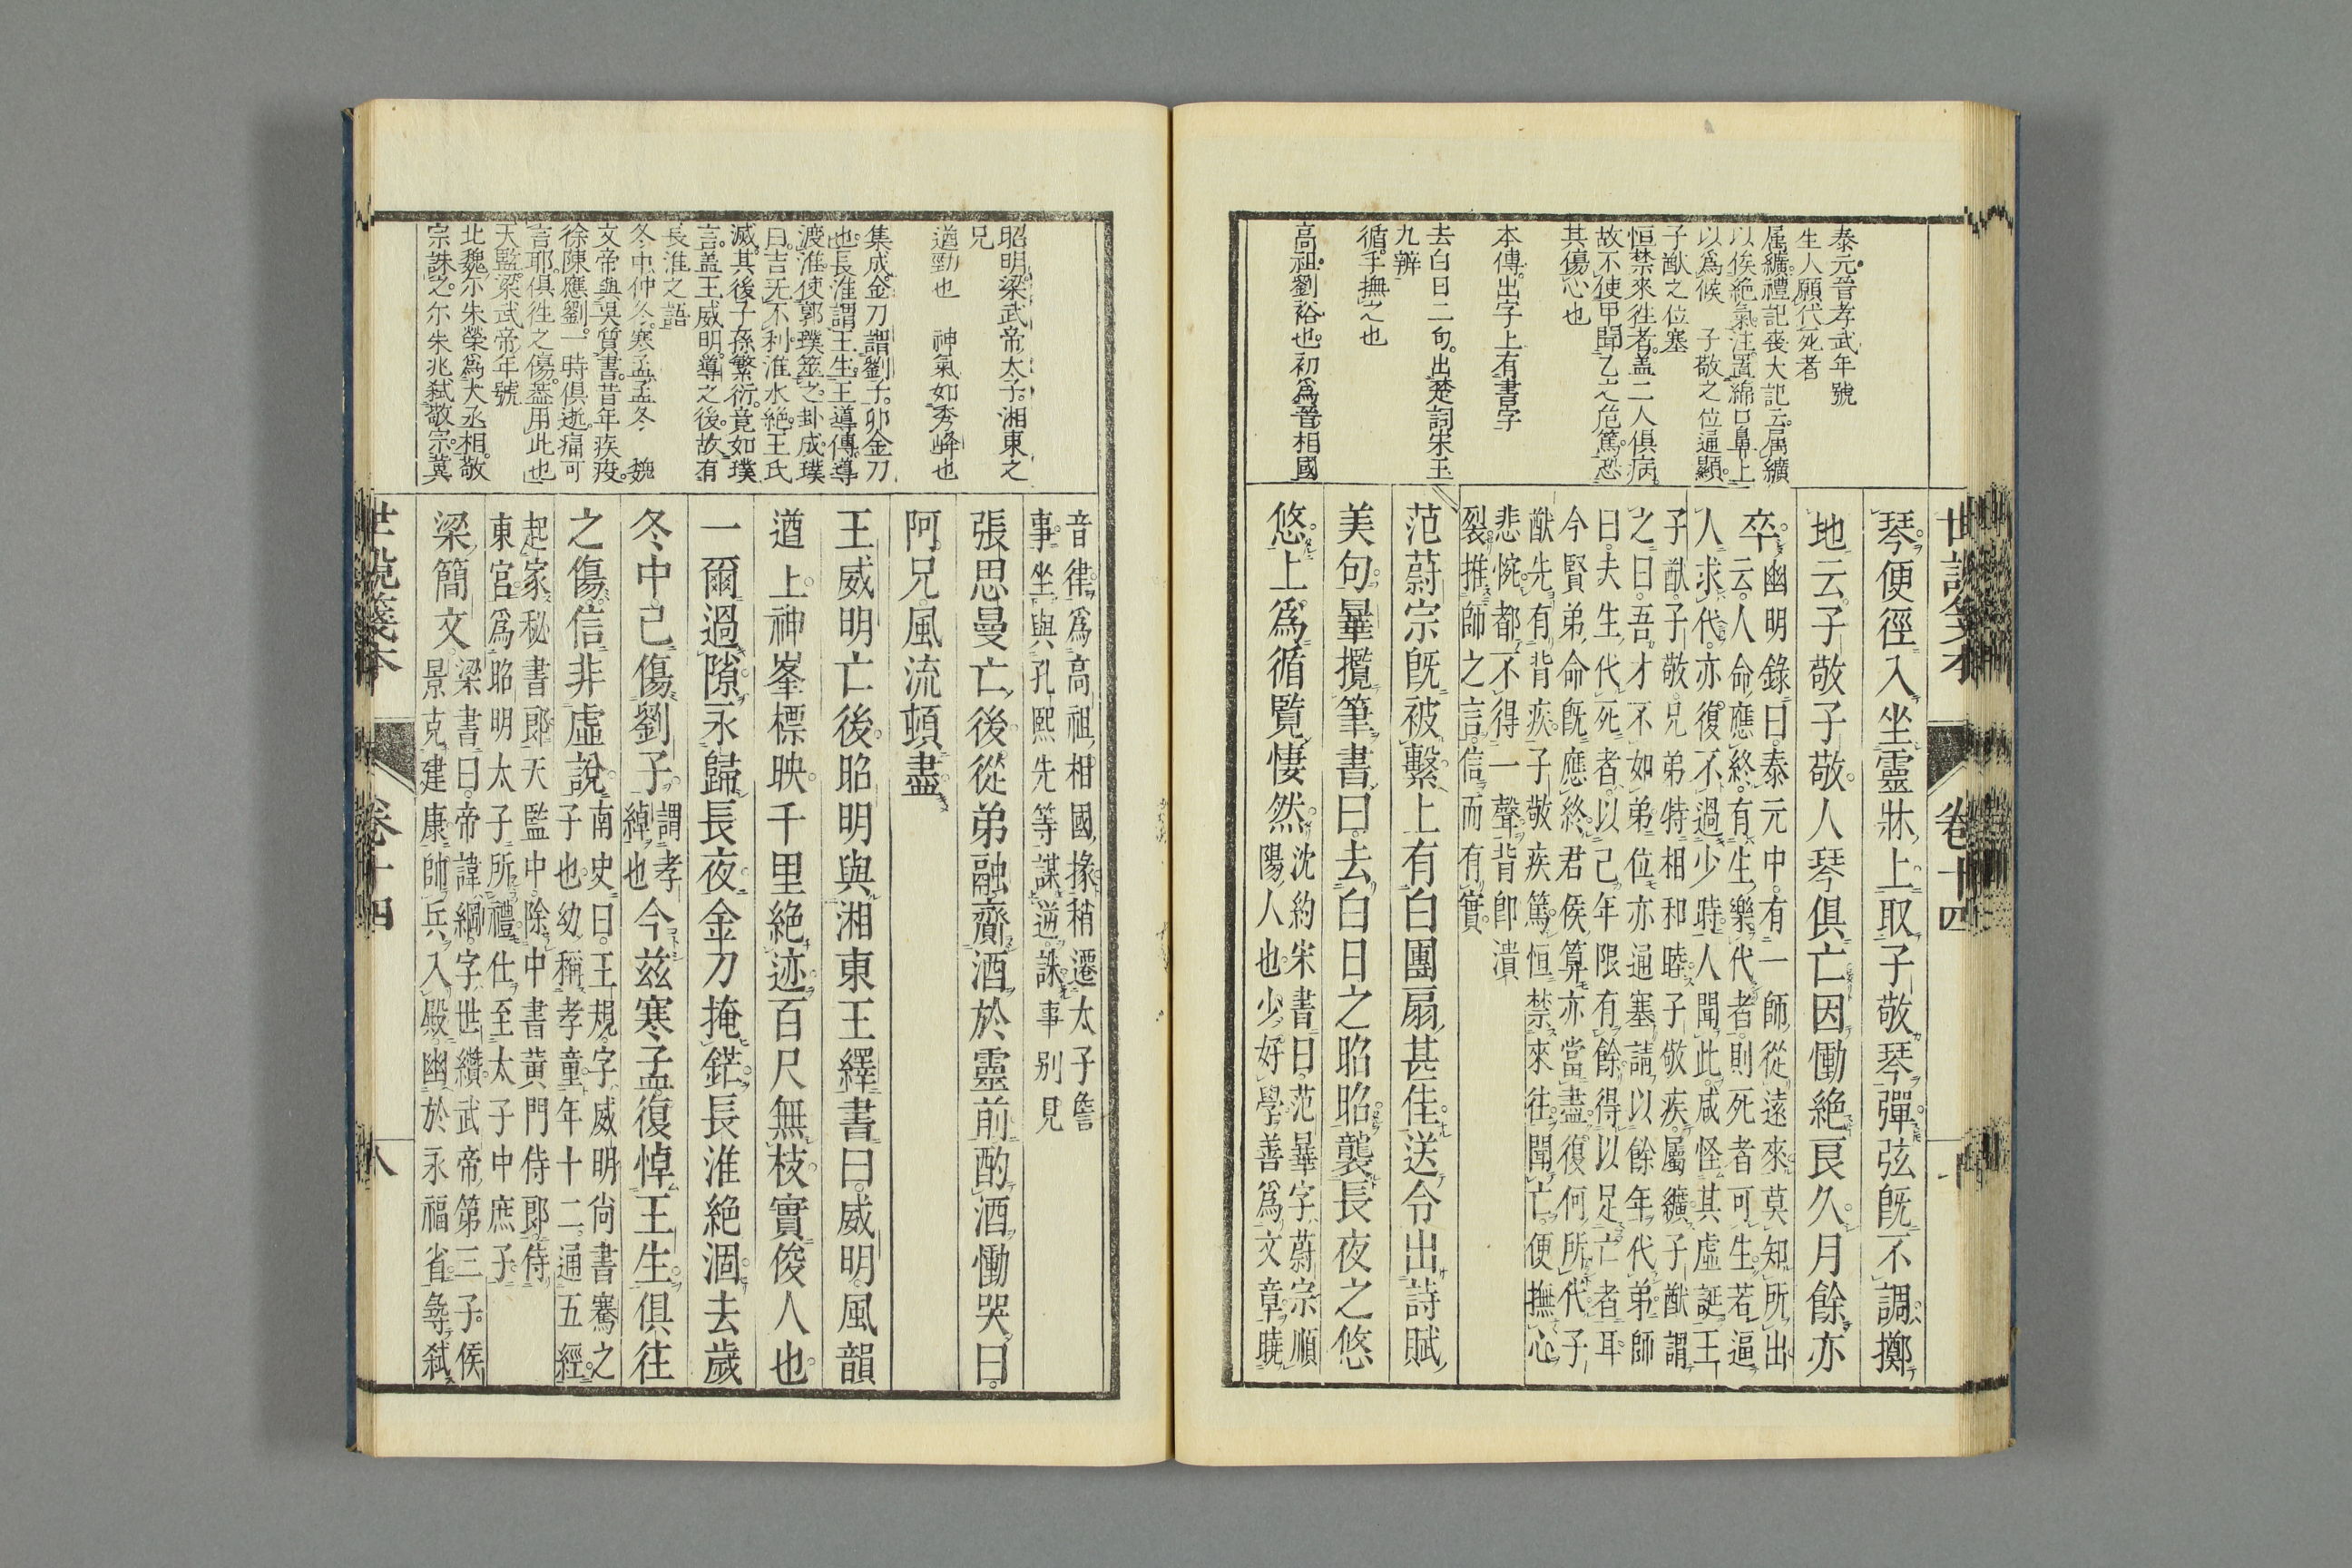 泰元晉孝武年號
生人願代死者
属纊禮記喪大記云屬纊
以俟絶氣注置綿口鼻上
以爲候 子敬之位逼顯
子猷之位塞
恒禁來徃者蓋二人俱病
故不使甲聞乙之危篤恐
其傷心也
本傳出字上有書字
去白日二句出楚詞宋玉
九辨
循手撫之也
高祖劉裕也初爲晉相國
世說箋本 卷十四
琴便徑入坐靈牀上取子敬琴彈弦旣不調擲
地云子敬子敬人琴俱亡因慟絶良久月餘亦
卒 幽明錄曰泰元中有一師從遠來莫知所出
云人命應終有生樂代者則死者可生若逼
人求代亦復不過少時人聞此咸怪其虛誕王
子猷子敬兄弟特相和睦子敬疾屬纊子猷謂
之曰吾才不如弟位亦通塞請以餘年代弟師
曰夫生代死者以己年限有餘得以足亡者耳
今賢弟命旣應終君侯算亦當盡復何所代子
猷先有背疾子敬疾篤恒禁來往聞亡便撫心
悲惋都不得一聲背卽潰
裂推師之言信而有實
范蔚宗旣被繫上有白團扇甚佳送令出詩賦
美句曄攬筆書曰去白日之昭昭襲長夜之悠
悠上爲循覽悽然 沈約宋書曰范曄字蔚宗順
陽人也少好學善爲文章曉
昭明梁武帝太子湘東之
兄
遒勁也 神氣如秀峰也
集成金刀謂劉子卯金刀
也長淮謂王生王導傳導
渡淮使郭璞筮之卦成璞
曰吉无不利淮水絶王氏
滅其後子孫繁衍竟如璞
言蓋王威明導之後故有
長淮之語
冬中仲冬寒孟孟冬 魏
文帝與吳質書昔年疾疫
徐陳應劉一時俱逝痛可
言耶俱徃之傷蓋用此也
天監梁武帝年號
北魏尒朱榮爲大丞相敬
宗誅之尒朱兆弑敬宗冀
音律爲高祖相國掾稍遷太子詹
事坐與孔熙先等謀逆誅事别見
張思曼亡後從弟融齎酒於靈前酌酒慟哭曰
阿兄風流頓盡
王威明亡後昭明與湘東王繹書曰威明風韻
遒上神峯標映千里絶迹百尺無枝實俊人也
一爾過隙永歸長夜金刀掩鋩長淮絶涸去歲
冬中已傷劉子 謂孝綽也 今玆寒孟復悼王生俱往
之傷信非虛說 南史曰王規字威明尚書騫之
子也幼稱孝童年十二通五經
起家秘書郎天監中除中書黄門侍郎侍
東宮爲昭明太子所禮仕至太子中庶子
梁簡文 梁書曰帝諱綱字世纘武帝第三子侯
景克建康帥兵入殿幽於永福省尋弑
世說箋本 卷十四 八